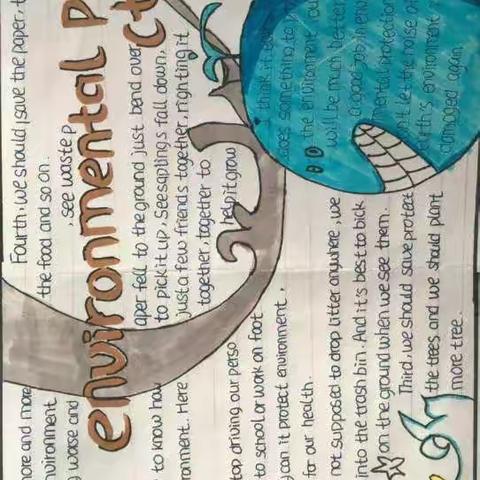 ore and more
nvironment
worse and
to know how
ronment. Here
top driving our perso
to school or work on foot
y can it protect environment,
for our health.
not supposed to drop litter anywhere, we
into the trash bin. And it's best to bick
on the ground when we see them.
Third, we should save protect
the trees and we should plant
more tree.
environmental p
ct
Fourth, we should save the paper, t
the food and so on.
see waste p
aper fell to the ground just bend over
to pick it up, see saplings fall down,
just a few friends together, righting it
together, together to
help it grow
think it
does something to p
the environment
will be much better
a good job in
mental protection
't let the noise of
this environment
damaged again.